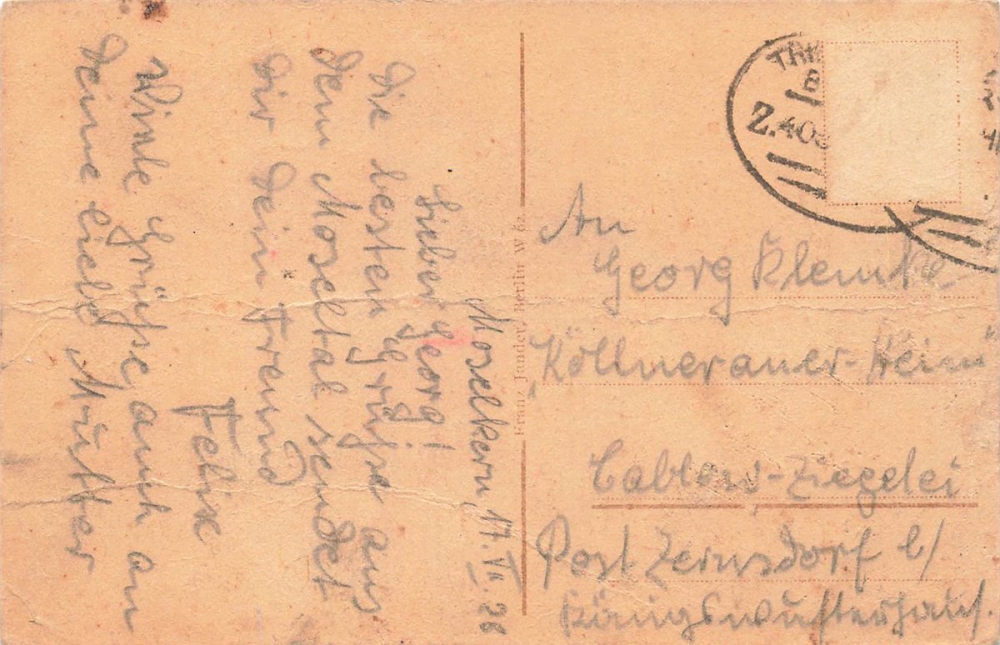 Moselkern, 17. VII. 28
Lieber Georg!
Die besten Grüße aus
dem Moseltal sendet
dir dein Freund
Felix
Viele Grüße auch an
deine liebe Mutter
Franz Jander, Berlin W 62.
Z.408
An
Georg Klemke
„Köllnerauer-Heim"
Cablow-Ziegelei
Post Zernsdorf b/
Königswusterhaus.